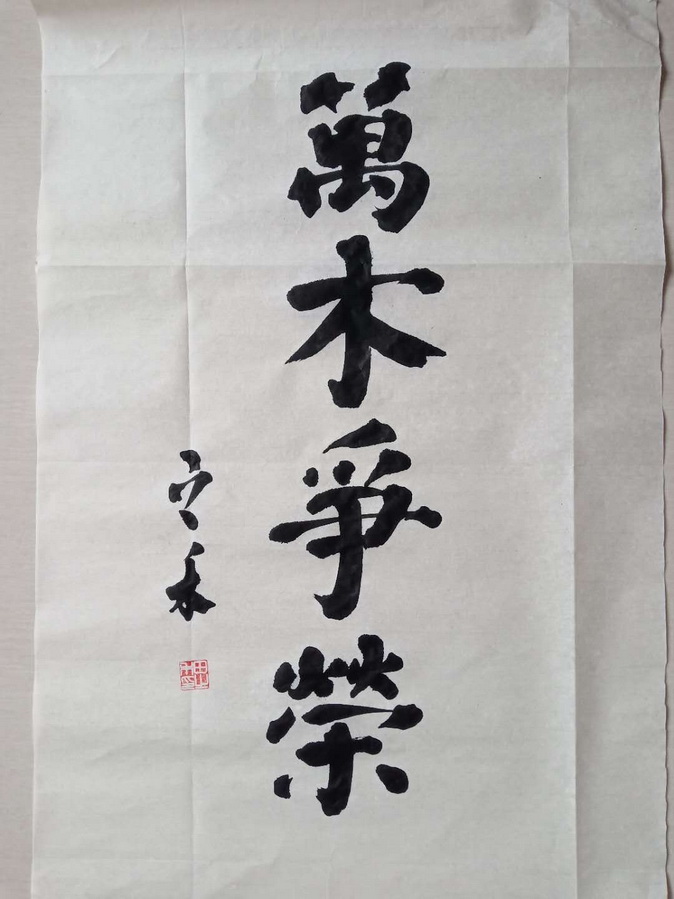 萬木爭榮